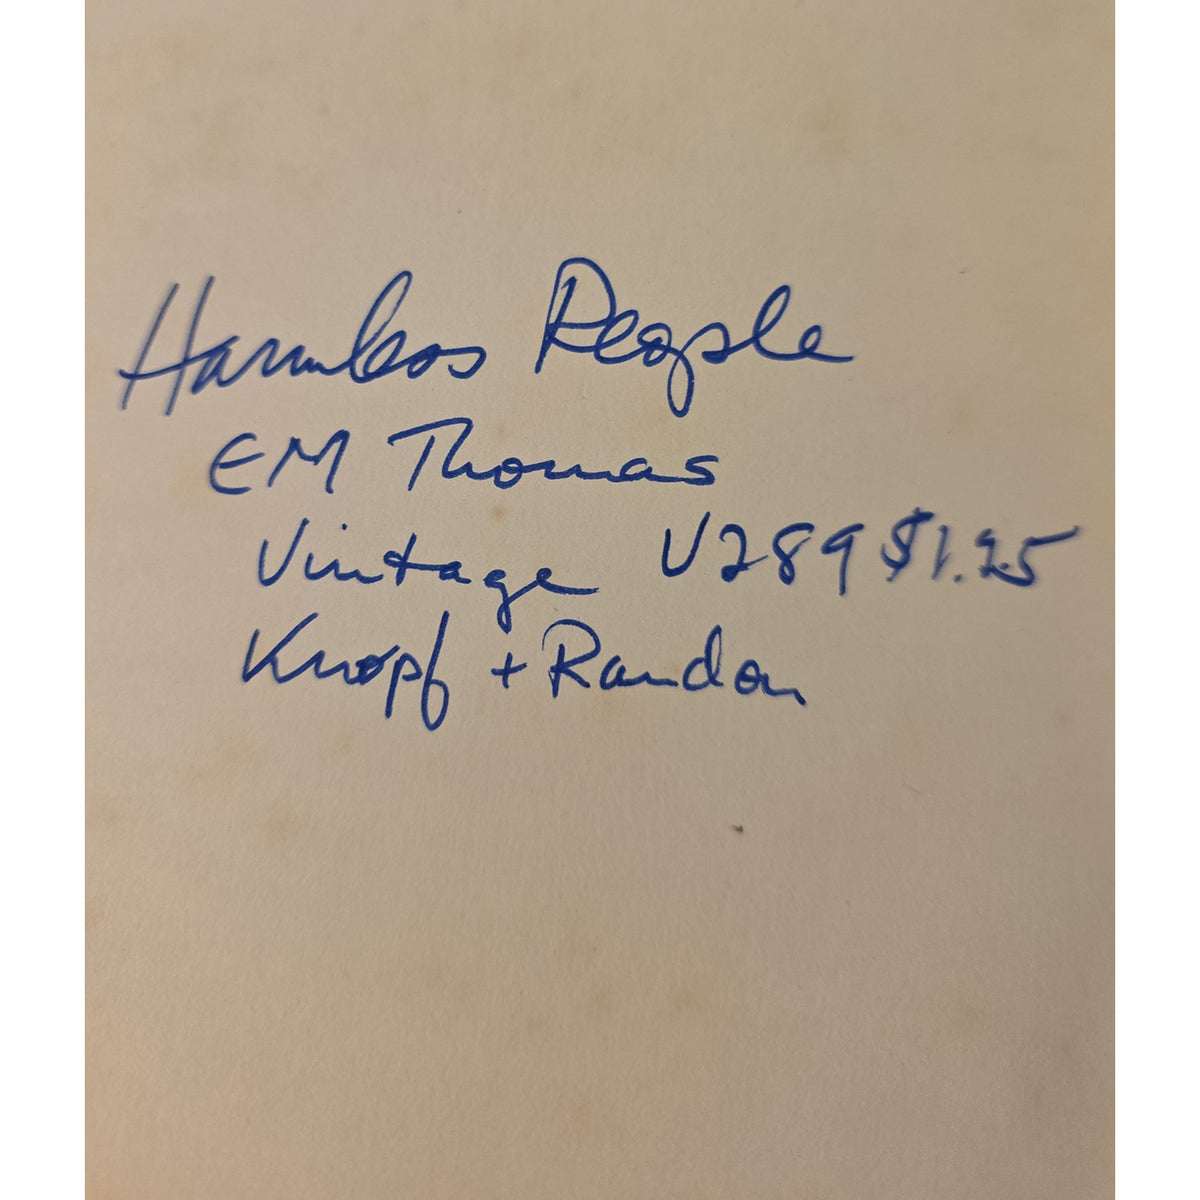 Harmless People
EM Thomas
Vintage V289 $1.25
Knopf + Random